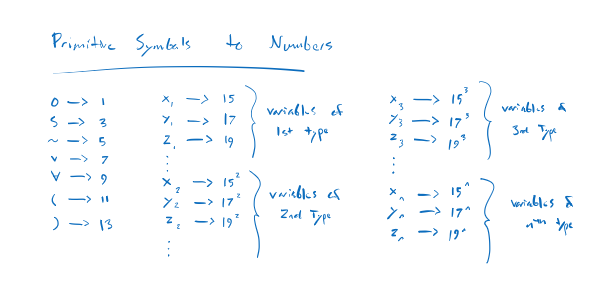 Primitive Symbols to Numbers
0 → 1
S → 3
~ → 5
∨ → 7
∀ → 9
( → 11
) → 13
x₁ → 15
y₁ → 17
z₁ → 19
⋮
variables of
1st type
x₂ → 15²
y₂ → 17²
z₂ → 19²
⋮
variables of
2nd Type
x₃ → 15³
y₃ → 17³
z₃ → 19³
⋮
variables of
3rd Type
xₙ → 15ⁿ
yₙ → 17ⁿ
zₙ → 19ⁿ
variables of
nᵗʰ type